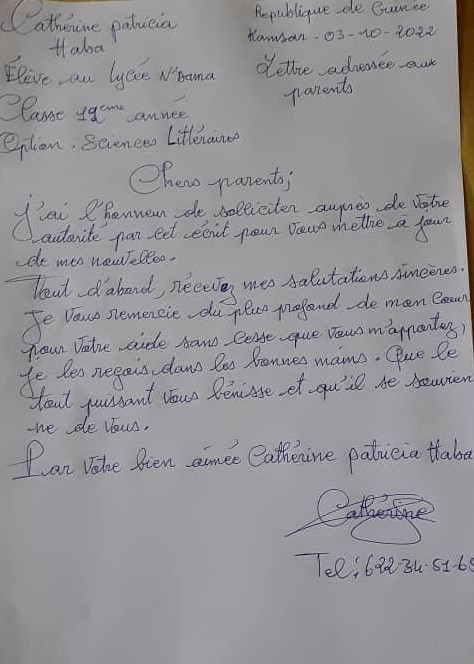 Cathérine patricia
Haba
Élève au lycée N'Dama
Classe 12ème année
Option. Sciences Littéraires
Republique de Guinée
Kamsar. 03-10-2022
Lettre adressée aux
parents
Chers parents;
J'ai l'honneur de solliciter auprès de Votre
autorité par cet écrit pour vous mettre à jour
de mes nouvelles.
Tout d'abord, récevez mes salutations sincères.
Je vous remercie du plus profond de mon cœur
pour votre aide sans cesse que vous m'apportez,
je les reçois dans les bonnes mains. Que le
tout puissant vous bénisse et qu'il se souvien
ne de vous.
Par votre bien aimée Cathérine patricia Haba
Cathérine
Tel: 622-34-51-68